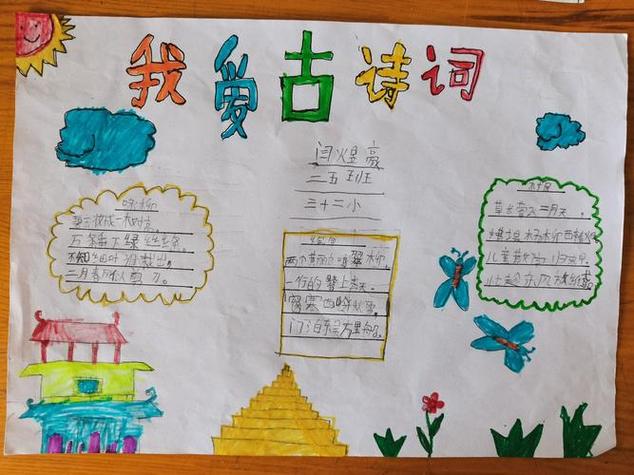 我爱古诗词
闫煜豪
二五班
三十二小
咏柳
碧玉妆成一树高，
万条垂下绿丝绦。
不知细叶谁裁出，
二月春风似剪刀。
绝句
两个黄鹂鸣翠柳，
一行白鹭上青天。
窗含西岭千秋雪，
门泊东吴万里船。
村居
草长莺飞二月天，
拂堤杨柳醉春烟。
儿童散学归来早，
忙趁东风放纸鸢。